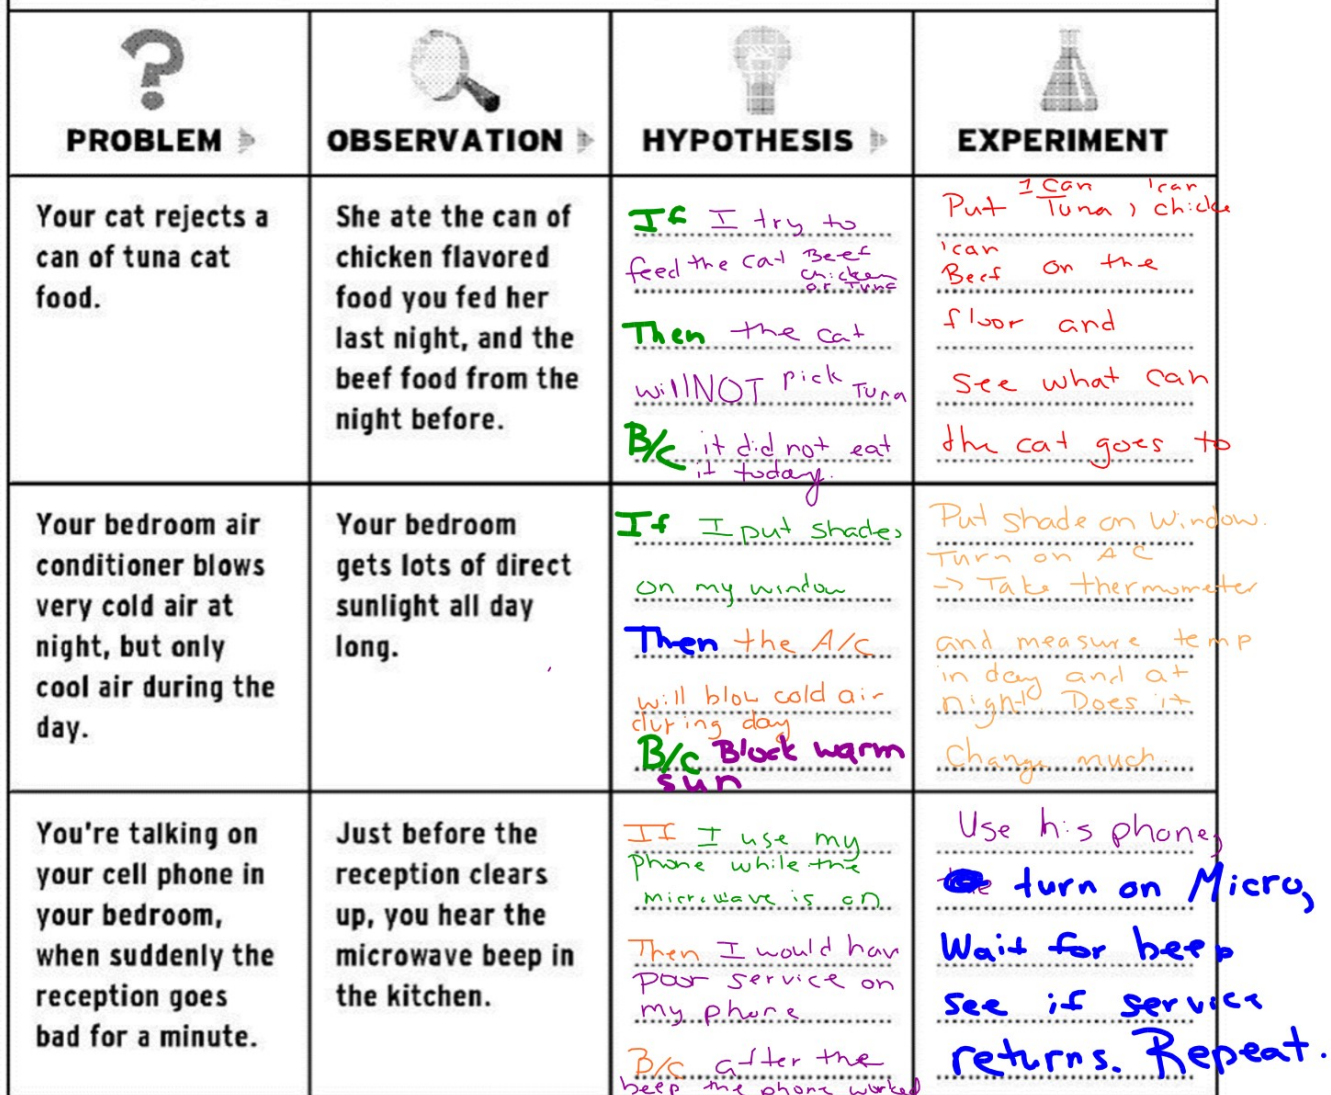 PROBLEM
OBSERVATION
HYPOTHESIS
EXPERIMENT
Your cat rejects a
can of tuna cat
food.
She ate the can of
chicken flavored
food you fed her
last night, and the
beef food from the
night before.
If I try to
feed the cat Beef
chicken
or Tuna
Then the cat
will NOT pick Tuna
B/c it did not eat
it today.
1 can 1 can
Put Tuna, chicke
1 can
Beef on the
floor and
see what can
the cat goes to
Your bedroom air
conditioner blows
very cold air at
night, but only
cool air during the
day.
Your bedroom
gets lots of direct
sunlight all day
long.
If I put shades
on my window
Then the A/C
will blow cold air
during day
B/c Block warm
sun
Put shade on window.
Turn on AC
-> Take thermometer
and measure temp
in day and at
night. Does it
Change much.
You're talking on
your cell phone in
your bedroom,
when suddenly the
reception goes
bad for a minute.
Just before the
reception clears
up, you hear the
microwave beep in
the kitchen.
If I use my
phone while the
microwave is on
Then I would hav
poor service on
my phone
B/c after the
beep the phone worked
Use his phone,
turn on Micro,
Wait for beep
see if service
returns. Repeat.